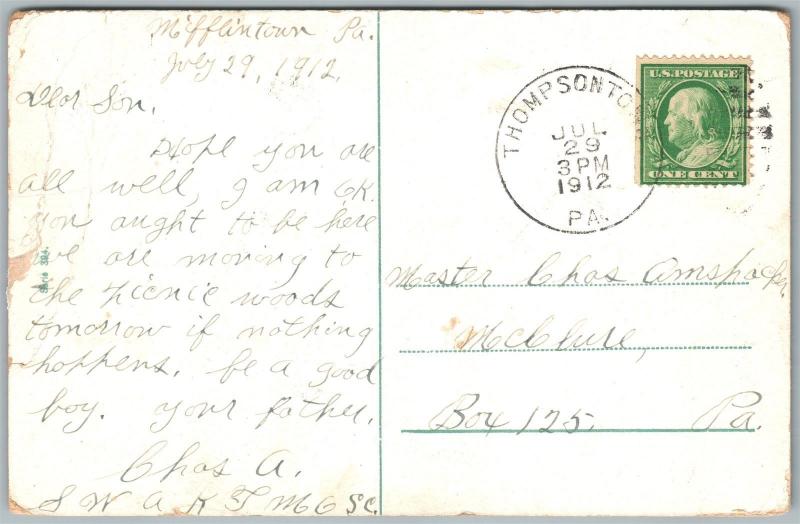 Mifflintown Pa.
July 29, 1912.
Dear Son.
Hope you are
all well, I am OK.
you aught to be here
we are moving to
the Picnic woods
tomorrow if nothing
happens. be a good
boy. your father.
Chas A.
S W A K T M C S C.
Serie 394.
THOMPSONTOWN
JUL
29
3 PM
1912
PA.
U.S. POSTAGE
ONE CENT
Master Chas Amspacker,
McClure,
Box 125. Pa.